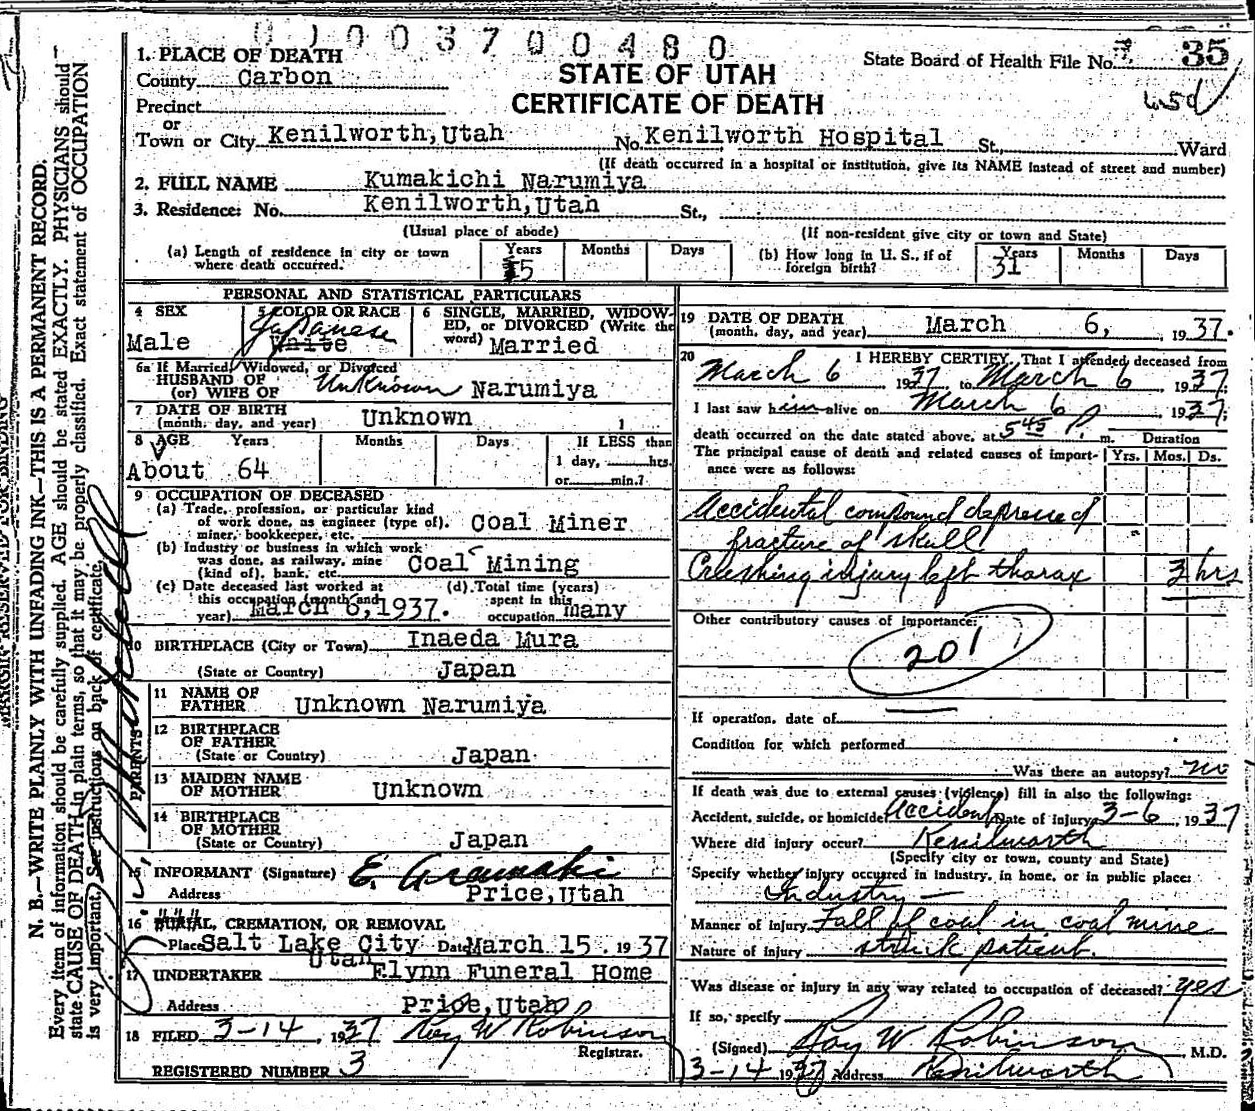 0 1 0 0 3 7 0 0 4 8 0
1. PLACE OF DEATH
County Carbon
Precinct
or
Town or City Kenilworth, Utah
STATE OF UTAH
CERTIFICATE OF DEATH
State Board of Health File No. 35
No. Kenilworth Hospital St., Ward
(If death occurred in a hospital or institution, give its NAME instead of street and number)
2. FULL NAME Kumakichi Narumiya
3. Residence: No. Kenilworth, Utah St.,
(Usual place of abode) (If non-resident give city or town and State)
(a) Length of residence in city or town where death occurred. Years 15 Months Days
(b) How long in U. S., if of foreign birth? Years 31 Months Days
PERSONAL AND STATISTICAL PARTICULARS
4 SEX Male
5 COLOR OR RACE Japanese White
6 SINGLE, MARRIED, WIDOWED, or DIVORCED (Write the word) Married
6a If Married, Widowed, or Divorced
HUSBAND OF
(or) WIFE OF Unknown Narumiya
7 DATE OF BIRTH
(month, day, and year) Unknown
8 AGE Years Months Days If LESS than
1 day, hrs.
or min.?
About 64
9 OCCUPATION OF DECEASED
(a) Trade, profession, or particular kind
of work done, as engineer (type of), Coal Miner
miner, bookkeeper, etc.
(b) Industry or business in which work
was done, as railway, mine Coal Mining
(kind of), bank, etc.
(c) Date deceased last worked at
this occupation (month and
year) March 6, 1937.
(d) Total time (years)
spent in this
occupation many
10 BIRTHPLACE (City or Town) Inaeda Mura
(State or Country) Japan
PARENTS
11 NAME OF
FATHER Unknown Narumiya
12 BIRTHPLACE
OF FATHER
(State or Country) Japan
13 MAIDEN NAME
OF MOTHER Unknown
14 BIRTHPLACE
OF MOTHER
(State or Country) Japan
15 INFORMANT (Signature) E.
Address Price, Utah
16 BURIAL, CREMATION, OR REMOVAL
Place Salt Lake City Date March 15, 1937
Utah
17 UNDERTAKER Flynn Funeral Home
Address Price, Utah
18 FILED 3-14, 1937 Roy W Robinson
Registrar.
REGISTERED NUMBER 3
19 DATE OF DEATH
(month, day, and year) March 6, 1937.
20 I HEREBY CERTIFY, That I attended deceased from
March 6, 1937 to March 6, 1937
I last saw him alive on March 6, 1937
death occurred on the date stated above, at 5 45 p. m. Duration
The principal cause of death and related causes of importance were as follows: Yrs. Mos. Ds.
Accidental compound depressed
fracture of skull
Crushing injury left thorax 3 hrs
Other contributory causes of importance:
201
If operation, date of
Condition for which performed
Was there an autopsy? no
If death was due to external causes (violence) fill in also the following:
Accident, suicide, or homicide? Accident Date of injury 3-6, 1937
Where did injury occur? Kenilworth
(Specify city or town, county and State)
Specify whether injury occurred in industry, in home, or in public place:
Industry
Manner of injury Fall of coal in coal mine
Nature of injury struck patient.
Was disease or injury in any way related to occupation of deceased? yes
If so, specify
(Signed) Roy W Robinson, M.D.
3-14 1937 Address Kenilworth
MARGIN RESERVED FOR BINDING
N. B.—WRITE PLAINLY WITH UNFADING INK—THIS IS A PERMANENT RECORD.
Every item of information should be carefully supplied. AGE should be stated EXACTLY. PHYSICIANS should
state CAUSE OF DEATH in plain terms, so that it may be properly classified. Exact statement of OCCUPATION
is very important. See instructions on back of certificate.